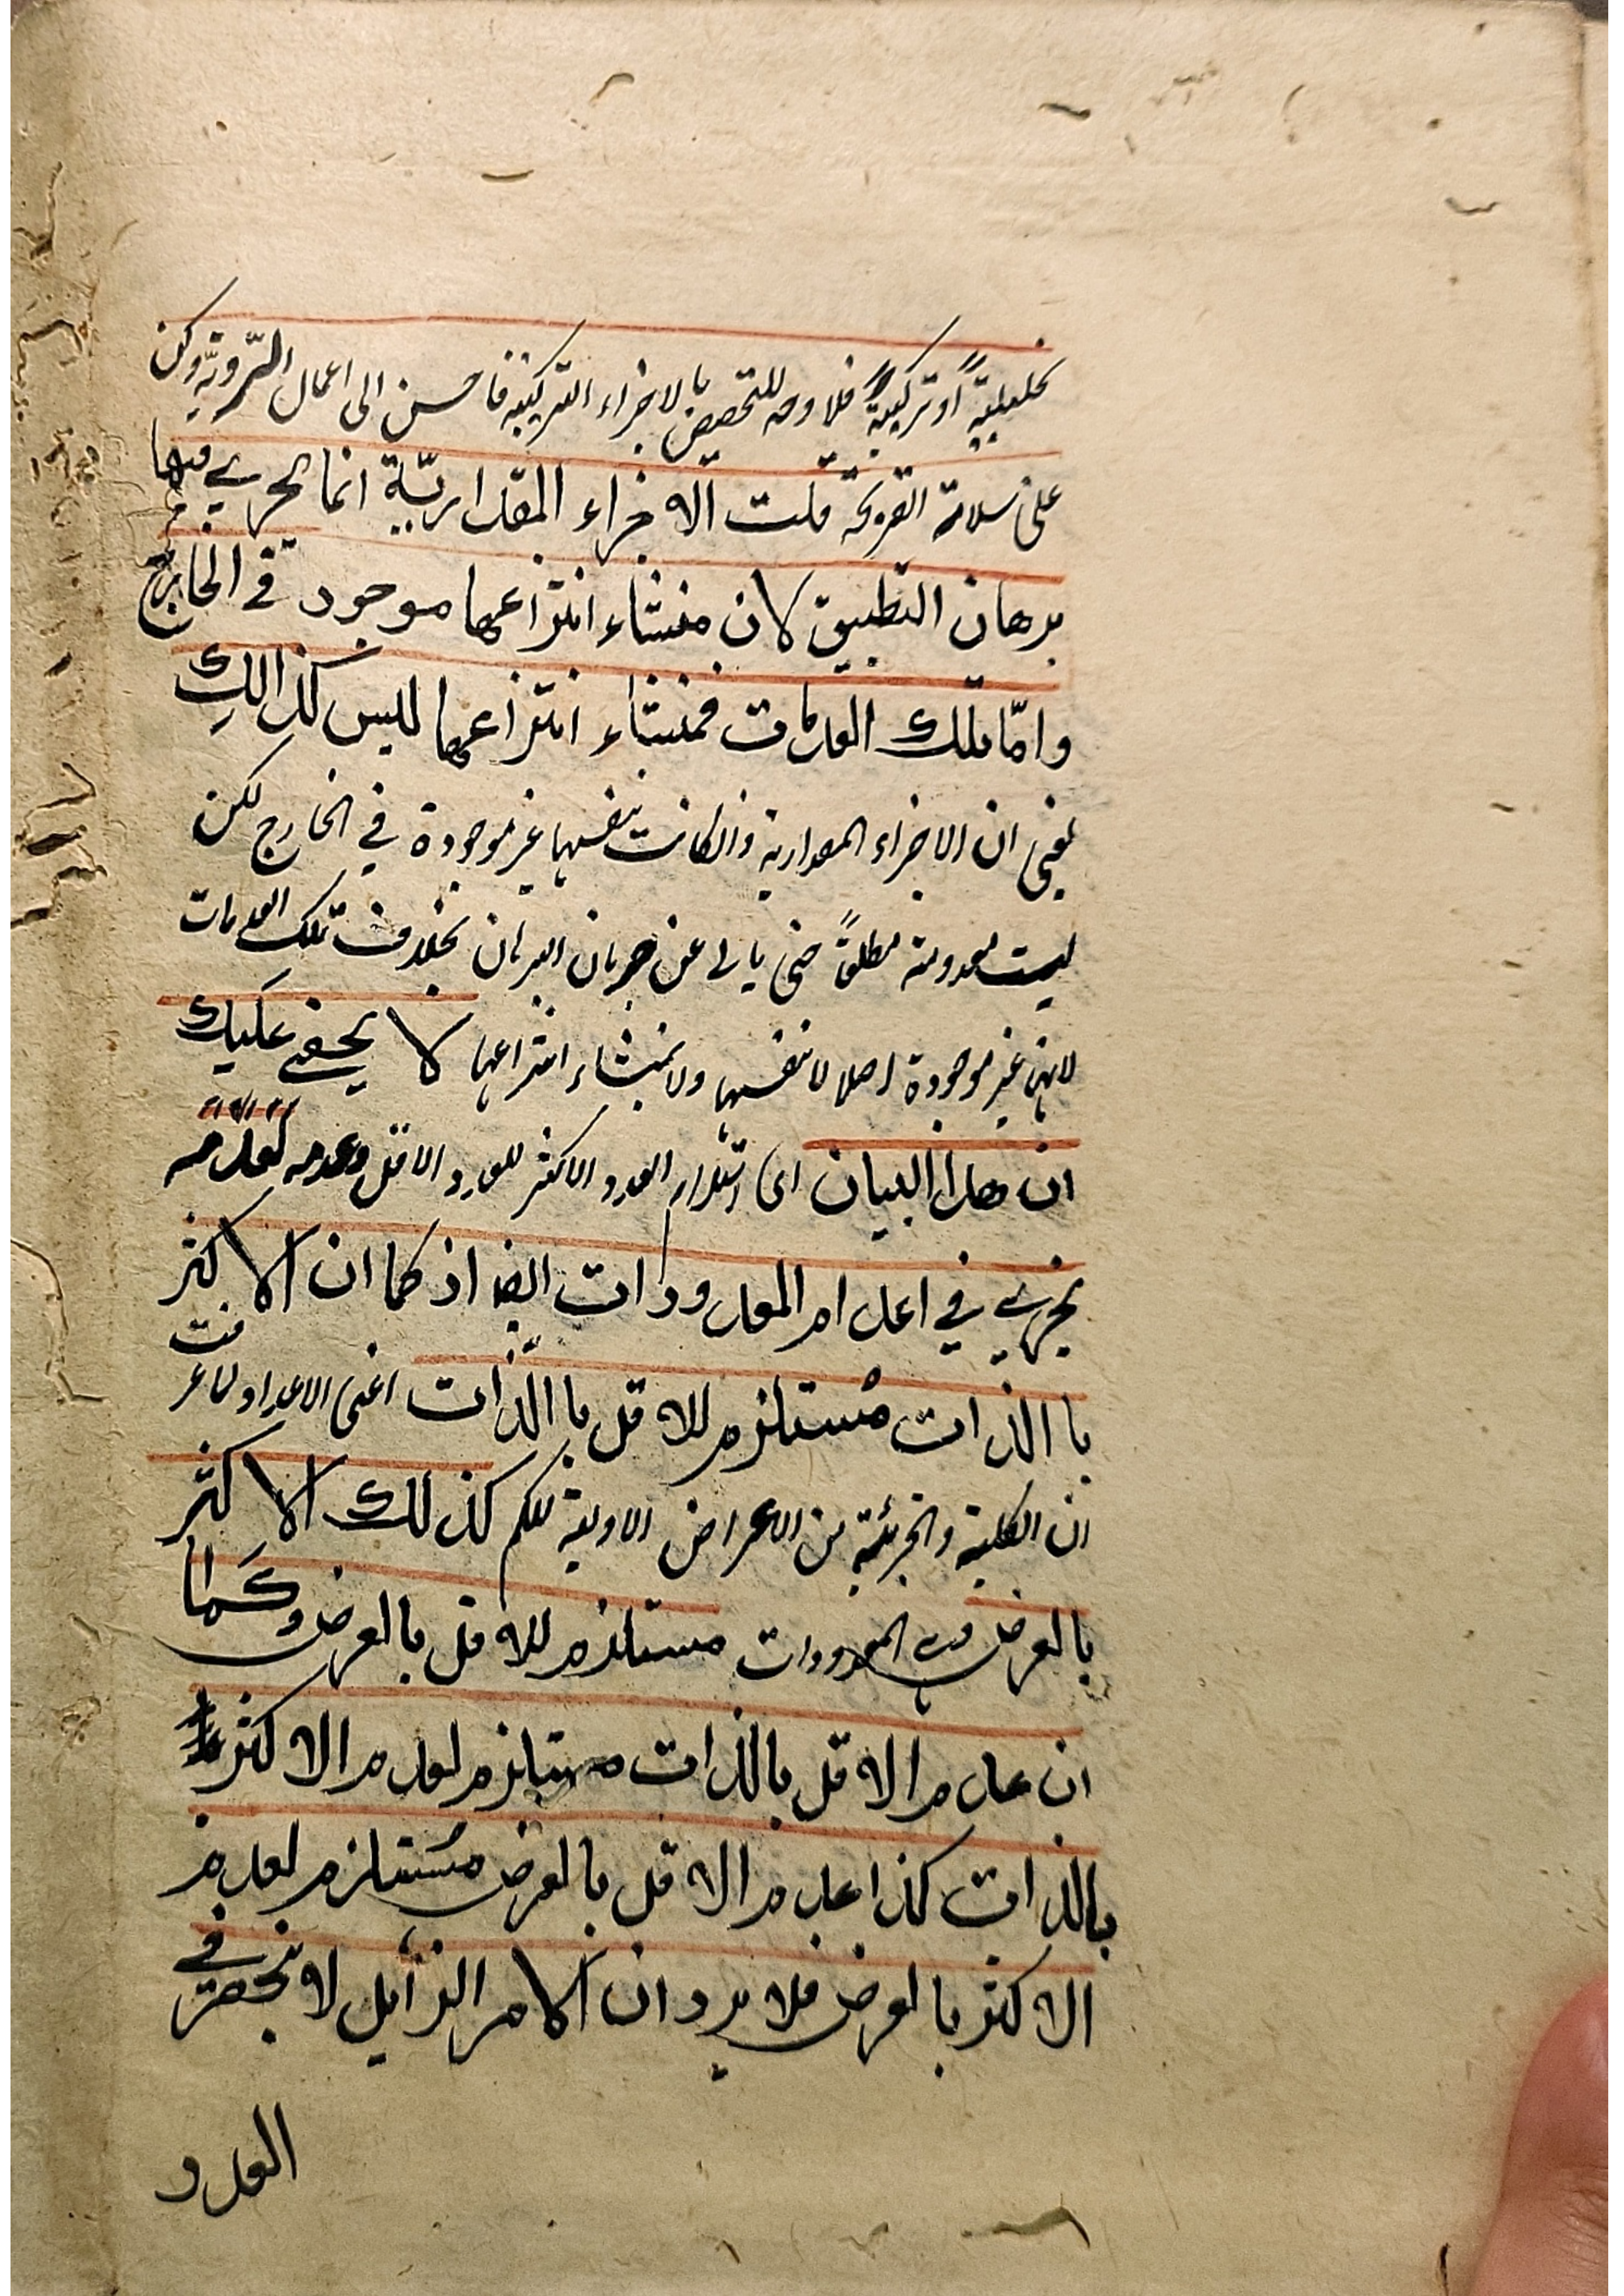 تحليلية او تركيبية فلا وجه للتخصيص بالاجزاء التركيبية فاحسن الى اعمال الروية وكن
على سلامة القريحة قلت الاجزاء المقدارية انما يجري فيها
برهان التطبيق لان منشاء انتزاعها موجود في الخارج
وامّا تلك العدمات فمنشاء انتزاعها ليس كذالك
يعني ان الاجزاء المقدارية وانكانت بنفسها غير موجودة في الخارج لكن
ليست معدومة مطلقًا حتى يابى عن جريان البرهان بخلاف تلك العدمات
لانها غير موجودة اصلا لا بنفسها ولا بمنشاء انتزاعها لا يخفى عليك
ان هذا البيان اى استلزام العدد الاكثر للعدد الاقل وعدمه لعدمه
يجري في اعدام المعدودات ايضا اذ كما ان الاكثر
باالذات مُستلزم للاقل باالذّات اعنى الاعداد لما عرفت
ان الكلية والجزئية من الاعراض الاولية للكم كذلك الاكثر
بالعرض وهي المعدودات مستلزم للاقل بالعرض وكما
ان عدم الاقل بالذات مستلزم لعدم الاكثر
بالذات كذا عدم الاقل بالعرض مُستلزم لعدم
الاكثر بالعرض فلا يرد ان الامر الزائل لا ينحصر في
العدد